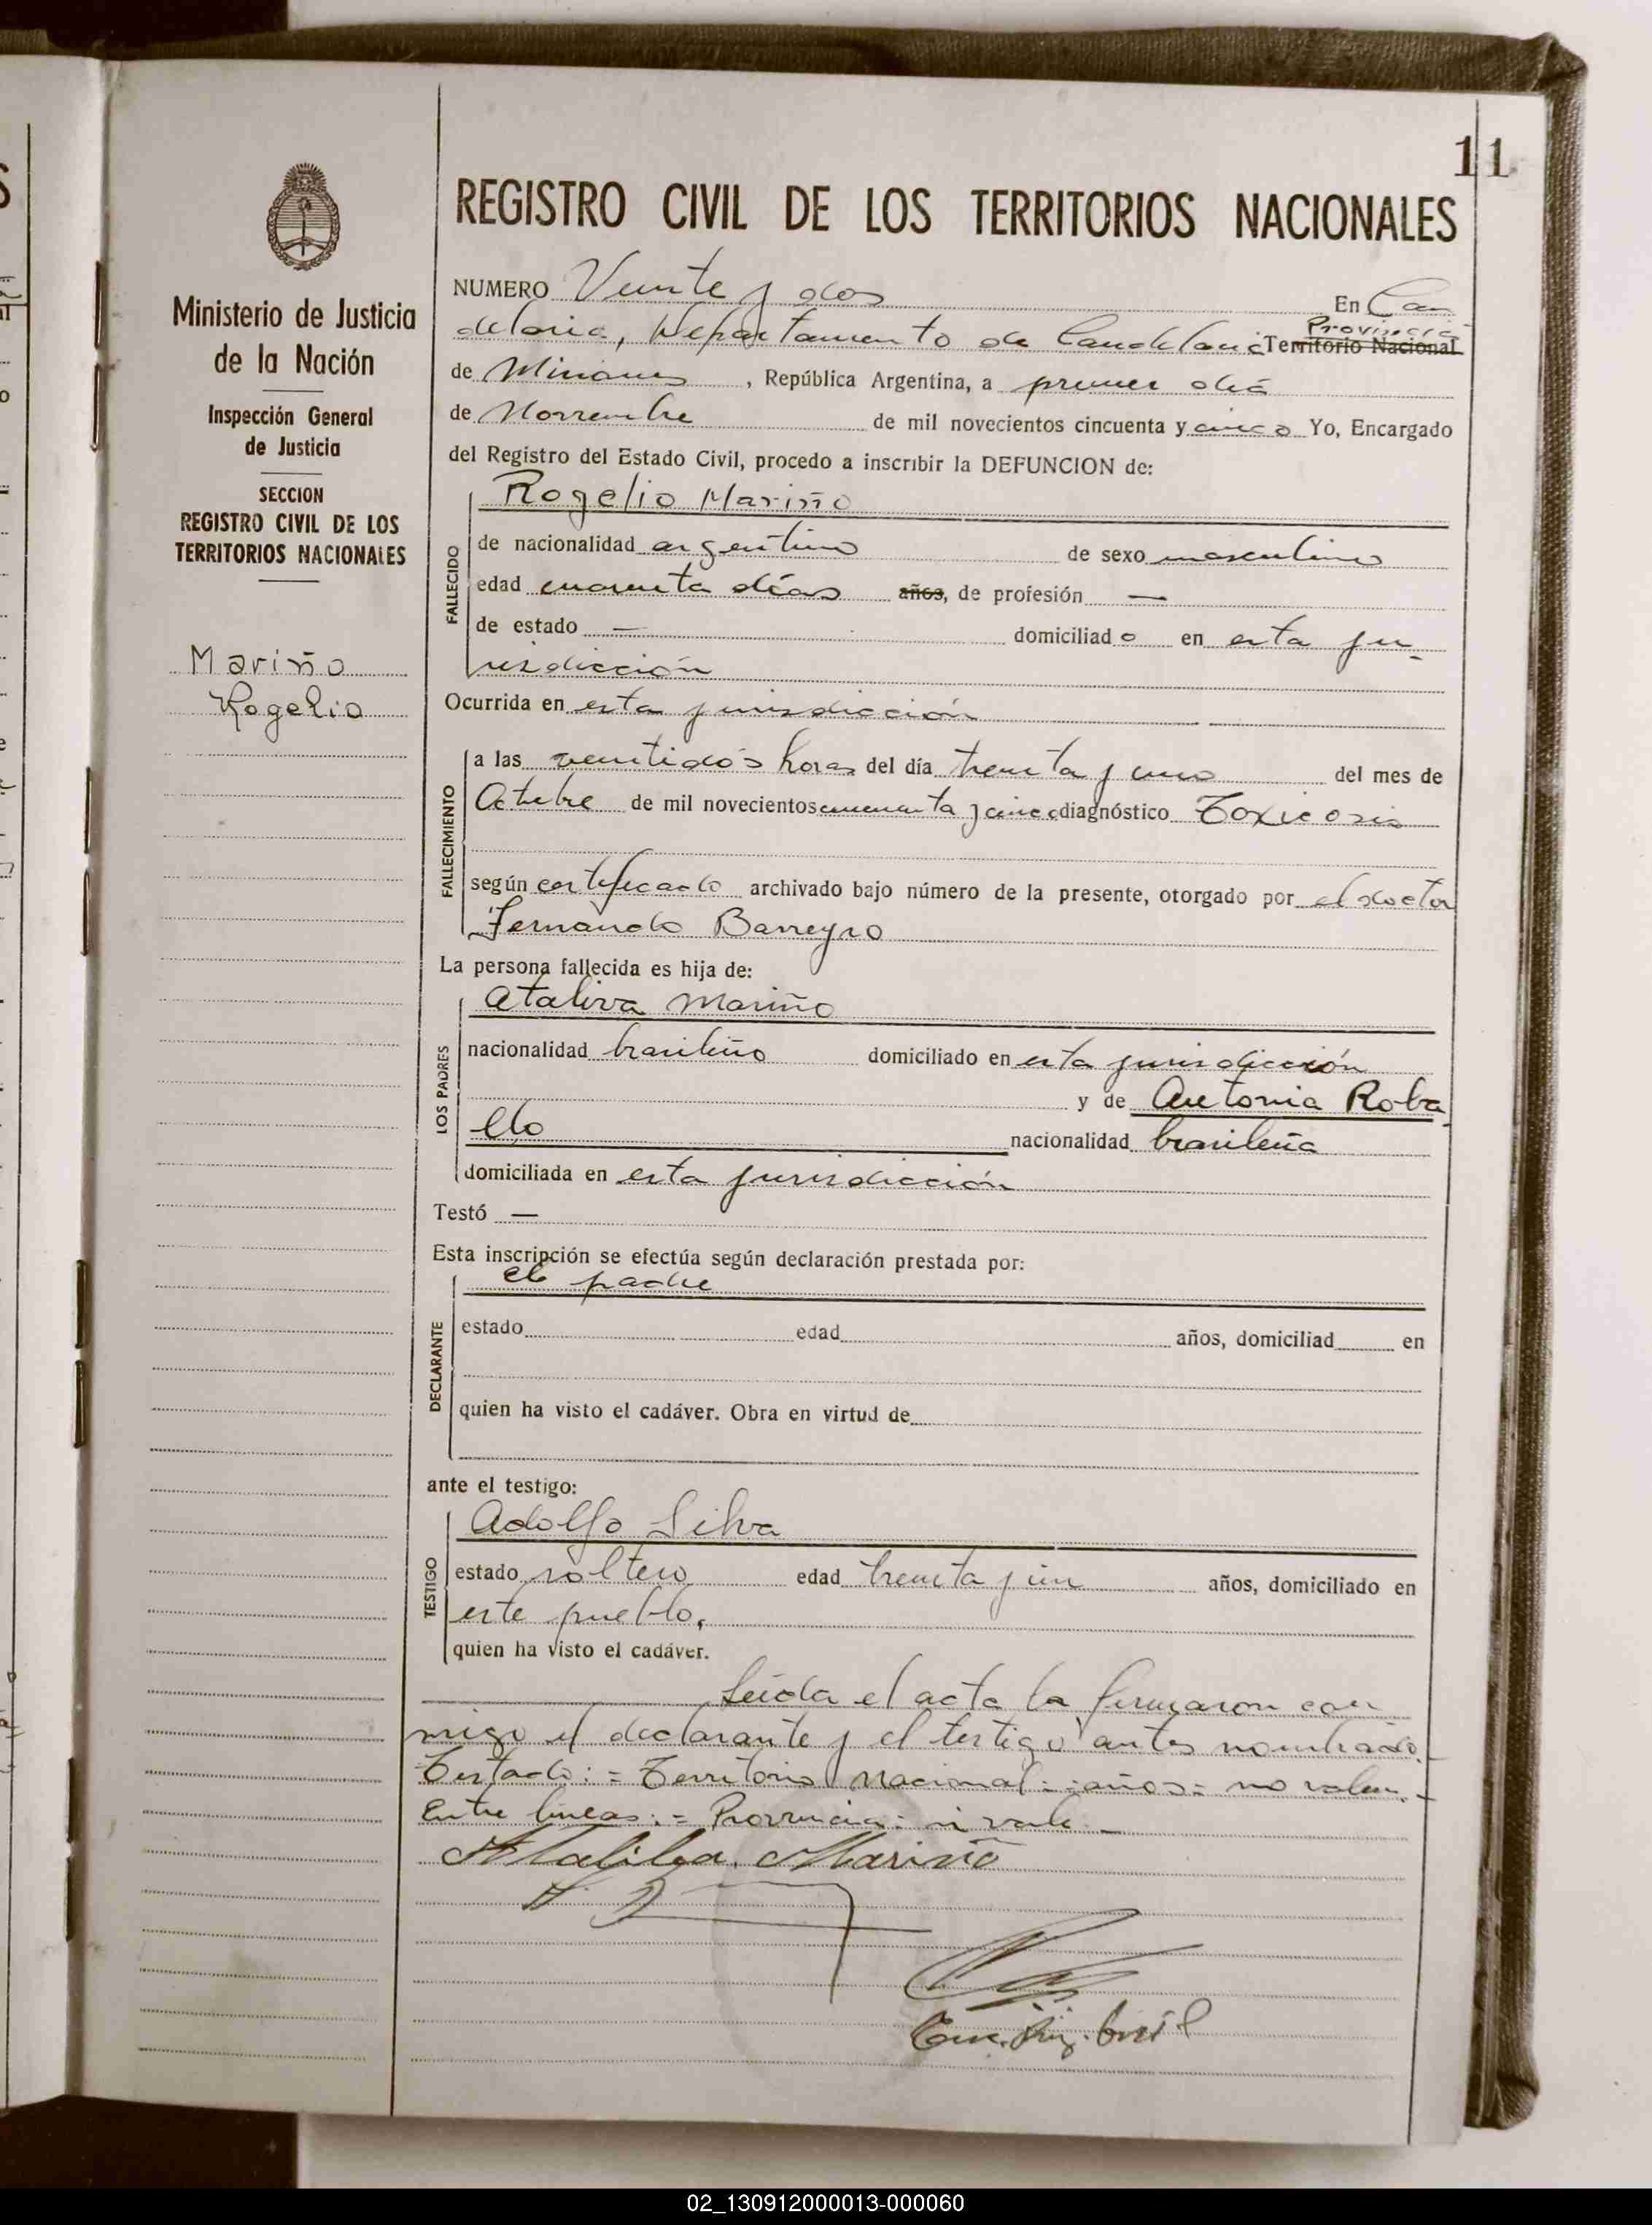 11
REGISTRO CIVIL DE LOS TERRITORIOS NACIONALES
Ministerio de Justicia
de la Nación
Inspección General
de Justicia
SECCION
REGISTRO CIVIL DE LOS
TERRITORIOS NACIONALES
Mariño
Rogelio
NUMERO Veinte y dos En Can
delaria, Departamento de Candelaria Provincia Territorio Nacional
de Misiones, República Argentina, a primer día
de Noviembre de mil novecientos cincuenta y cinco Yo, Encargado
del Registro del Estado Civil, procedo a inscribir la DEFUNCION de:
FALLECIDO
Rogelio Mariño
de nacionalidad argentino de sexo masculino
edad cuarenta días años, de profesión —
de estado — domiciliado en esta ju-
risdicción
Ocurrida en esta jurisdicción
FALLECIMIENTO
a las veintidós horas del día treinta y uno del mes de
Octubre de mil novecientos cincuenta y cinco diagnóstico Toxicosis
según certificado archivado bajo número de la presente, otorgado por el doctor
Fernando Barreyro
La persona fallecida es hija de:
LOS PADRES
Ataliva Mariño
nacionalidad brasileño domiciliado en esta jurisdicción
y de Antonia Roba
llo nacionalidad brasileña
domiciliada en esta jurisdicción
Testó —
Esta inscripción se efectúa según declaración prestada por:
DECLARANTE
el padre
estado edad años, domiciliad en
quien ha visto el cadáver. Obra en virtud de
ante el testigo:
TESTIGO
Adolfo Silva
estado soltero edad treinta y un años, domiciliado en
este pueblo.
quien ha visto el cadáver.
Leída el acta la firmaron con
migo el declarante y el testigo antes nombrado.-
Testado:= Territorio nacional:=años= no valen.-
Entre líneas:= Provincia: si vale.-
Ataliba Mariño
02_130912000013-000060